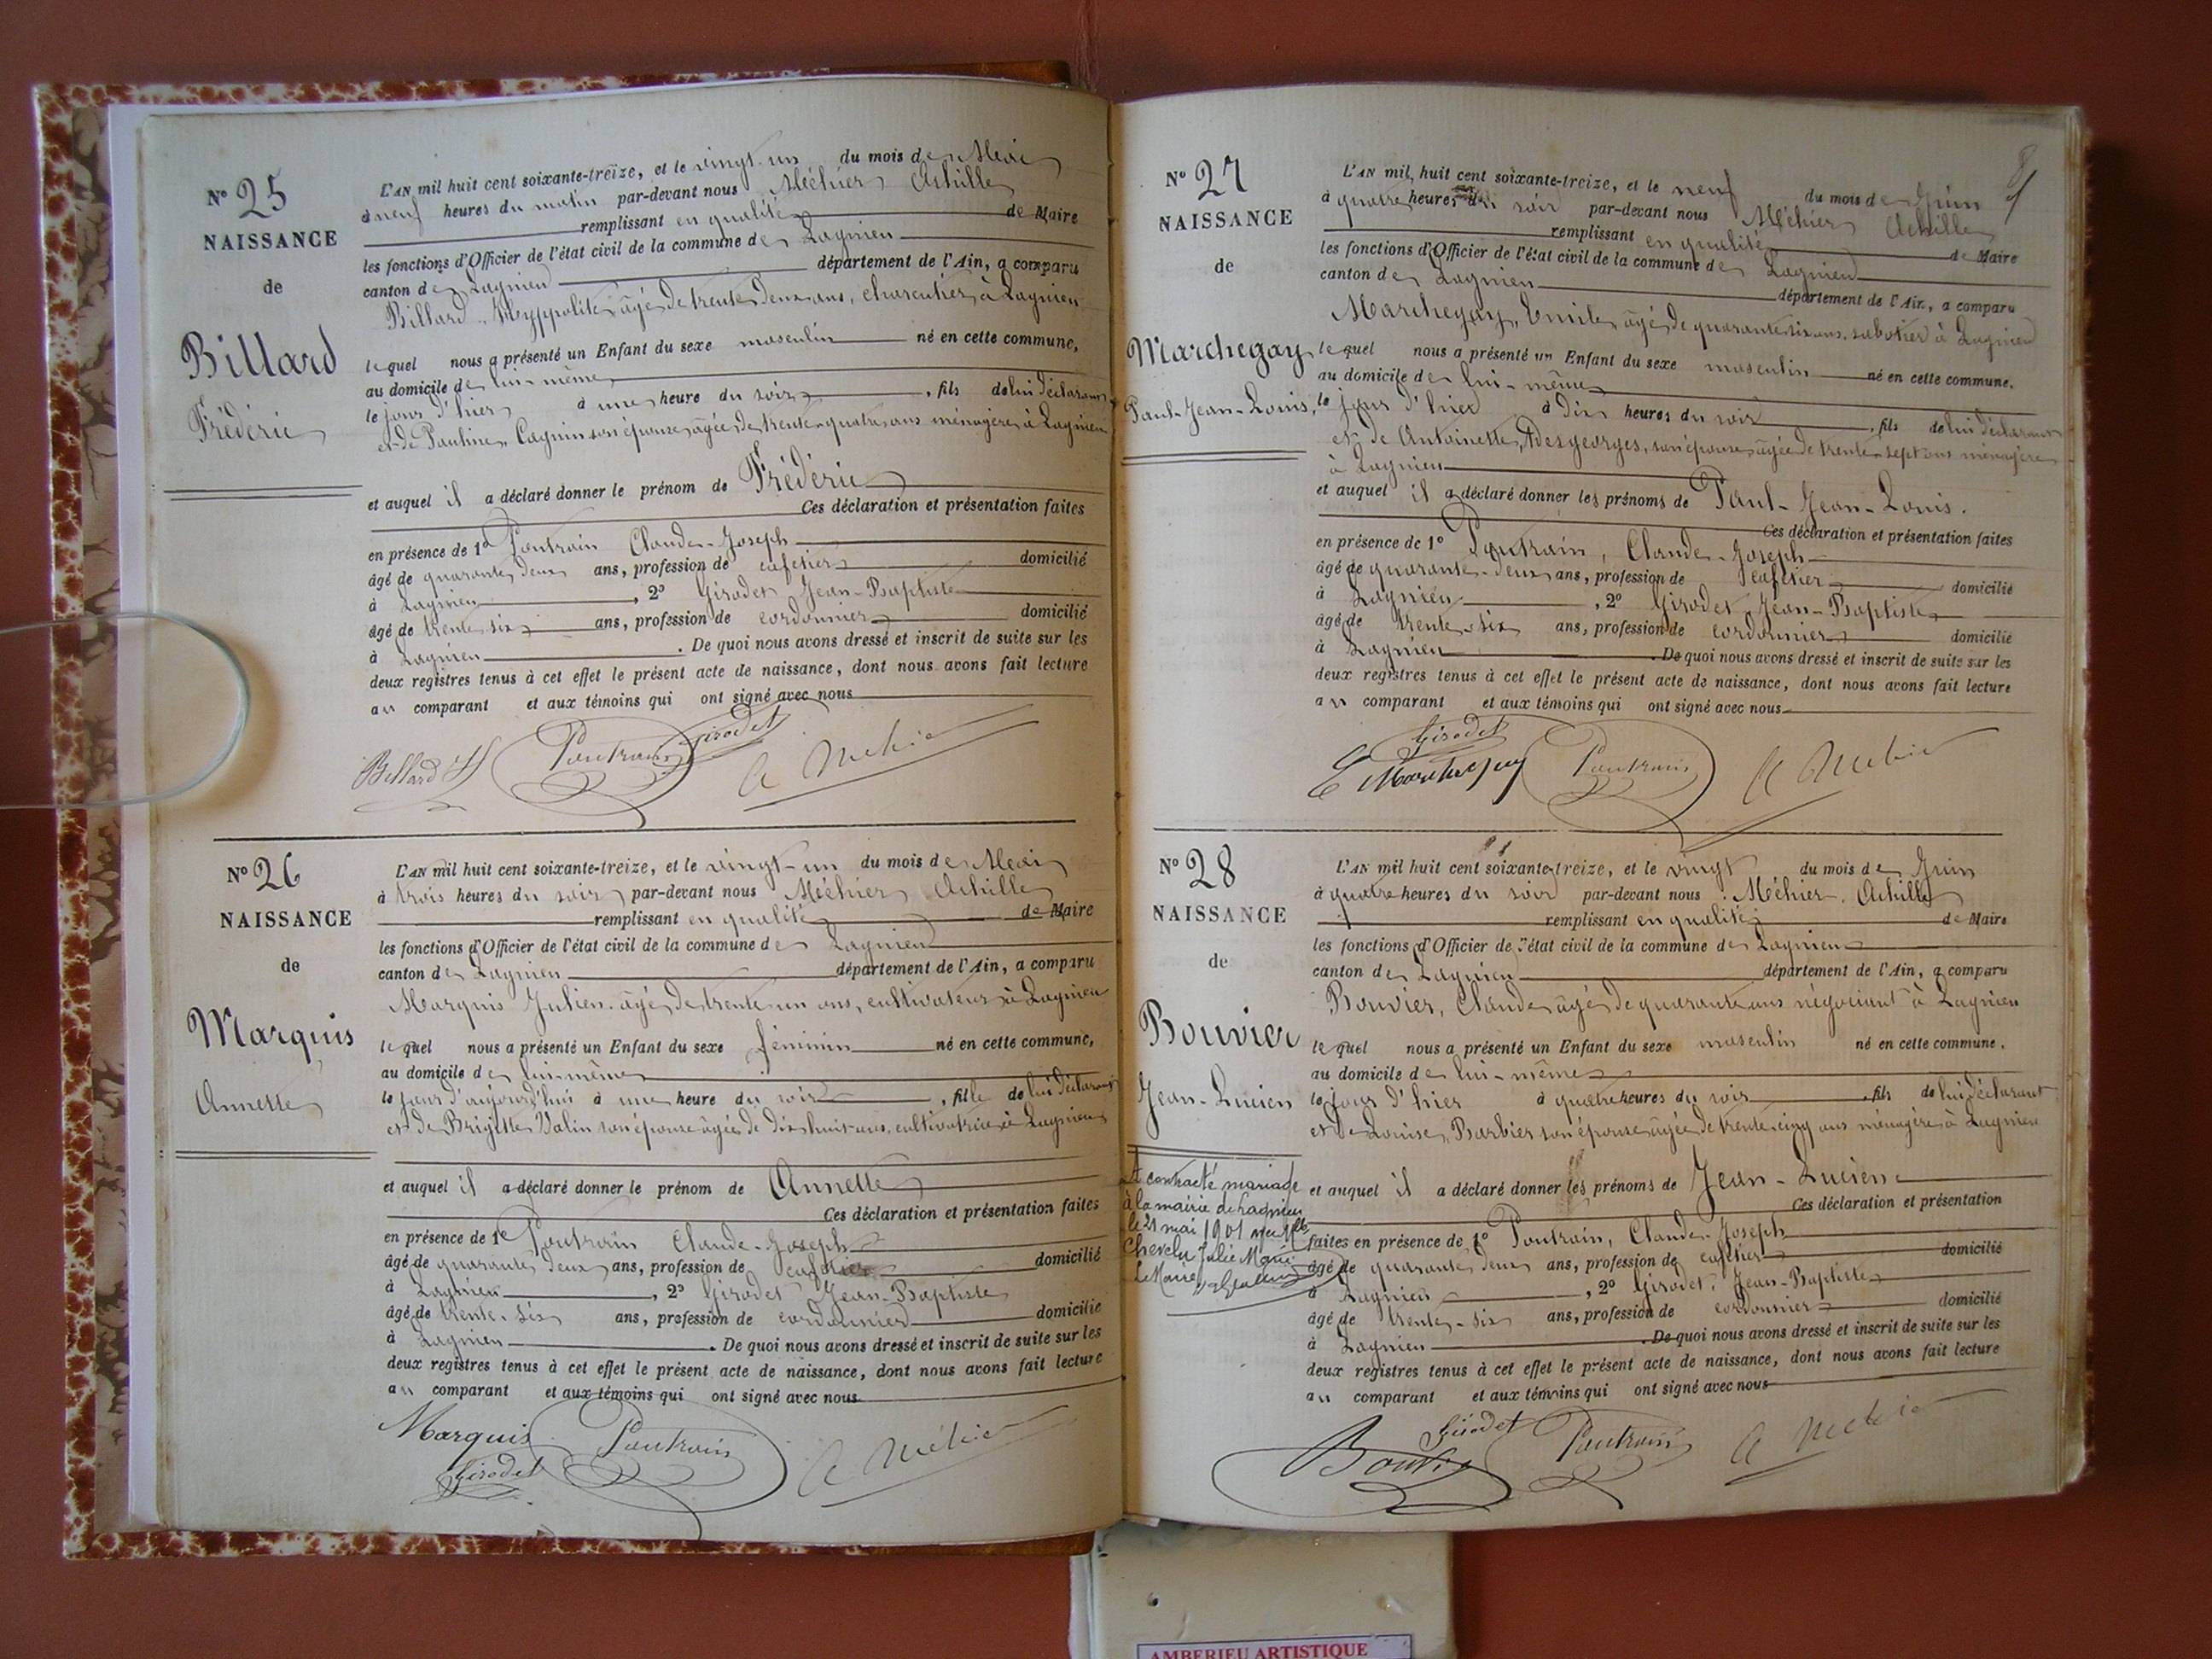 N° 25
NAISSANCE
de
Billard
Frédéric
L'AN mil huit cent soixante-treize, et le vingt-un du mois de Mai
à neuf heures du matin par-devant nous Méhier Achille
remplissant en qualité de Maire
les fonctions d'Officier de l'état civil de la commune de Lagnieu
canton de Lagnieu département de l'Ain, a comparu
Billard, Hyppolite, âgé de trente deux ans, charcutier, à Lagnieu
lequel nous a présenté un Enfant du sexe masculin né en cette commune,
au domicile de lui-même
le jour d'hier à une heure du soir, fils de lui déclarant
et de Pauline, Cagnin son épouse, âgée de trente-quatre ans ménagère à Lagnieu
et auquel il a déclaré donner le prénom de Frédéric
Ces déclaration et présentation faites
en présence de 1° Poutrain Claude-Joseph
âgé de quarante deux ans, profession de cafetier domicilié
à Lagnieu, 2° Girodet Jean-Baptiste
âgé de trente six ans, profession de cordonnier domicilié
à Lagnieu. De quoi nous avons dressé et inscrit de suite sur les
deux registres tenus à cet effet le présent acte de naissance, dont nous avons fait lecture
au comparant et aux témoins qui ont signé avec nous
Billard H Poutrain Girodet A Méhier
N° 26
NAISSANCE
de
Marquis
Annette
L'AN mil huit cent soixante-treize, et le vingt-un du mois de Mai
à trois heures du soir par-devant nous Méhier Achille
remplissant en qualité de Maire
les fonctions d'Officier de l'état civil de la commune de Lagnieu
canton de Lagnieu département de l'Ain, a comparu
Marquis Julien, âgé de trente-un ans, cultivateur à Lagnieu
lequel nous a présenté un Enfant du sexe féminin né en cette commune,
au domicile de lui-même
le jour d'aujourd'hui à une heure du soir, fille de lui déclarant
et de Brigitte Valin son épouse âgée de dix huit ans, cultivatrice à Lagnieu
et auquel il a déclaré donner le prénom de Annette
Ces déclaration et présentation faites
en présence de 1° Poutrain Claude-Joseph
âgé de quarante deux ans, profession de cafetier domicilié
à Lagnieu, 2° Girodet Jean-Baptiste
âgé de trente-six ans, profession de cordonnier domicilié
à Lagnieu. De quoi nous avons dressé et inscrit de suite sur les
deux registres tenus à cet effet le présent acte de naissance, dont nous avons fait lecture
au comparant et aux témoins qui ont signé avec nous
Marquis Poutrain A Méhier
Girodet
8
N° 27
NAISSANCE
de
Marchegay
Paul-Jean-Louis,
L'AN mil huit cent soixante-treize, et le neuf du mois de Juin
à quatre heures du soir par-devant nous Méhier Achille
remplissant en qualité de Maire
les fonctions d'Officier de l'état civil de la commune de Lagnieu
canton de Lagnieu département de l'Ain, a comparu
Marchegay, Emile, âgé de quarante six ans, sabotier à Lagnieu
lequel nous a présenté un Enfant du sexe masculin né en cette commune.
au domicile de lui-même
le jour d'hier à dix heures du soir, fils de lui déclarant
et de Antoinette, Desgeorges, son épouse, âgée de trente-sept ans ménagère
à Lagnieu
et auquel il a déclaré donner les prénoms de Paul-Jean-Louis.
Ces déclaration et présentation faites
en présence de 1° Poutrain, Claude-Joseph
âgé de quarante-deux ans, profession de cafetier domicilié
à Lagnieu, 2° Girodet, Jean-Baptiste
âgé de trente-six ans, profession de cordonnier domicilié
à Lagnieu. De quoi nous avons dressé et inscrit de suite sur les
deux registres tenus à cet effet le présent acte de naissance, dont nous avons fait lecture
au comparant et aux témoins qui ont signé avec nous
Girodet
E Marchegay Poutrain A Méhier
N° 28
NAISSANCE
de
Bouvier
Jean-Lucien
A contracté mariage
à la mairie de Lagnieu
le 21 mai 1901 avec Mlle
Chevelu Julie Marie
Le Maire
L'AN mil huit cent soixante-treize, et le vingt du mois de Juin
à quatre heures du soir par-devant nous Méhier Achille
remplissant en qualité de Maire
les fonctions d'Officier de l'état civil de la commune de Lagnieu
canton de Lagnieu département de l'Ain, a comparu
Bouvier, Claude, âgé de quarante ans négociant à Lagnieu
lequel nous a présenté un Enfant du sexe masculin né en cette commune,
au domicile de lui-même
le jour d'hier à quatre heures du soir, fils de lui déclarant
et de Louise, Barbier son épouse âgée de trente-cinq ans ménagère à Lagnieu
et auquel il a déclaré donner les prénoms de Jean-Lucien
Ces déclaration et présentation
faites en présence de 1° Poutrain, Claude-Joseph
âgé de quarante deux ans, profession de cafetier domicilié
à Lagnieu, 2° Girodet, Jean-Baptiste
âgé de trente-six ans, profession de cordonnier domicilié
à Lagnieu. De quoi nous avons dressé et inscrit de suite sur les
deux registres tenus à cet effet le présent acte de naissance, dont nous avons fait lecture
au comparant et aux témoins qui ont signé avec nous
Girodet
Bouvier Poutrain A Méhier
AMBERIEU ARTISTIQUE